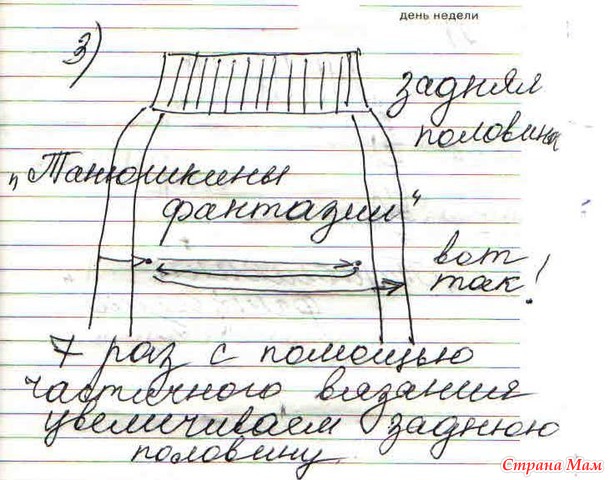 день недели
3)
задняя
половина
„Танюшкины
фантазии“
вот
так!
7 раз с помощью
частичного вязания
увеличиваем заднюю
половину
Страна Мам